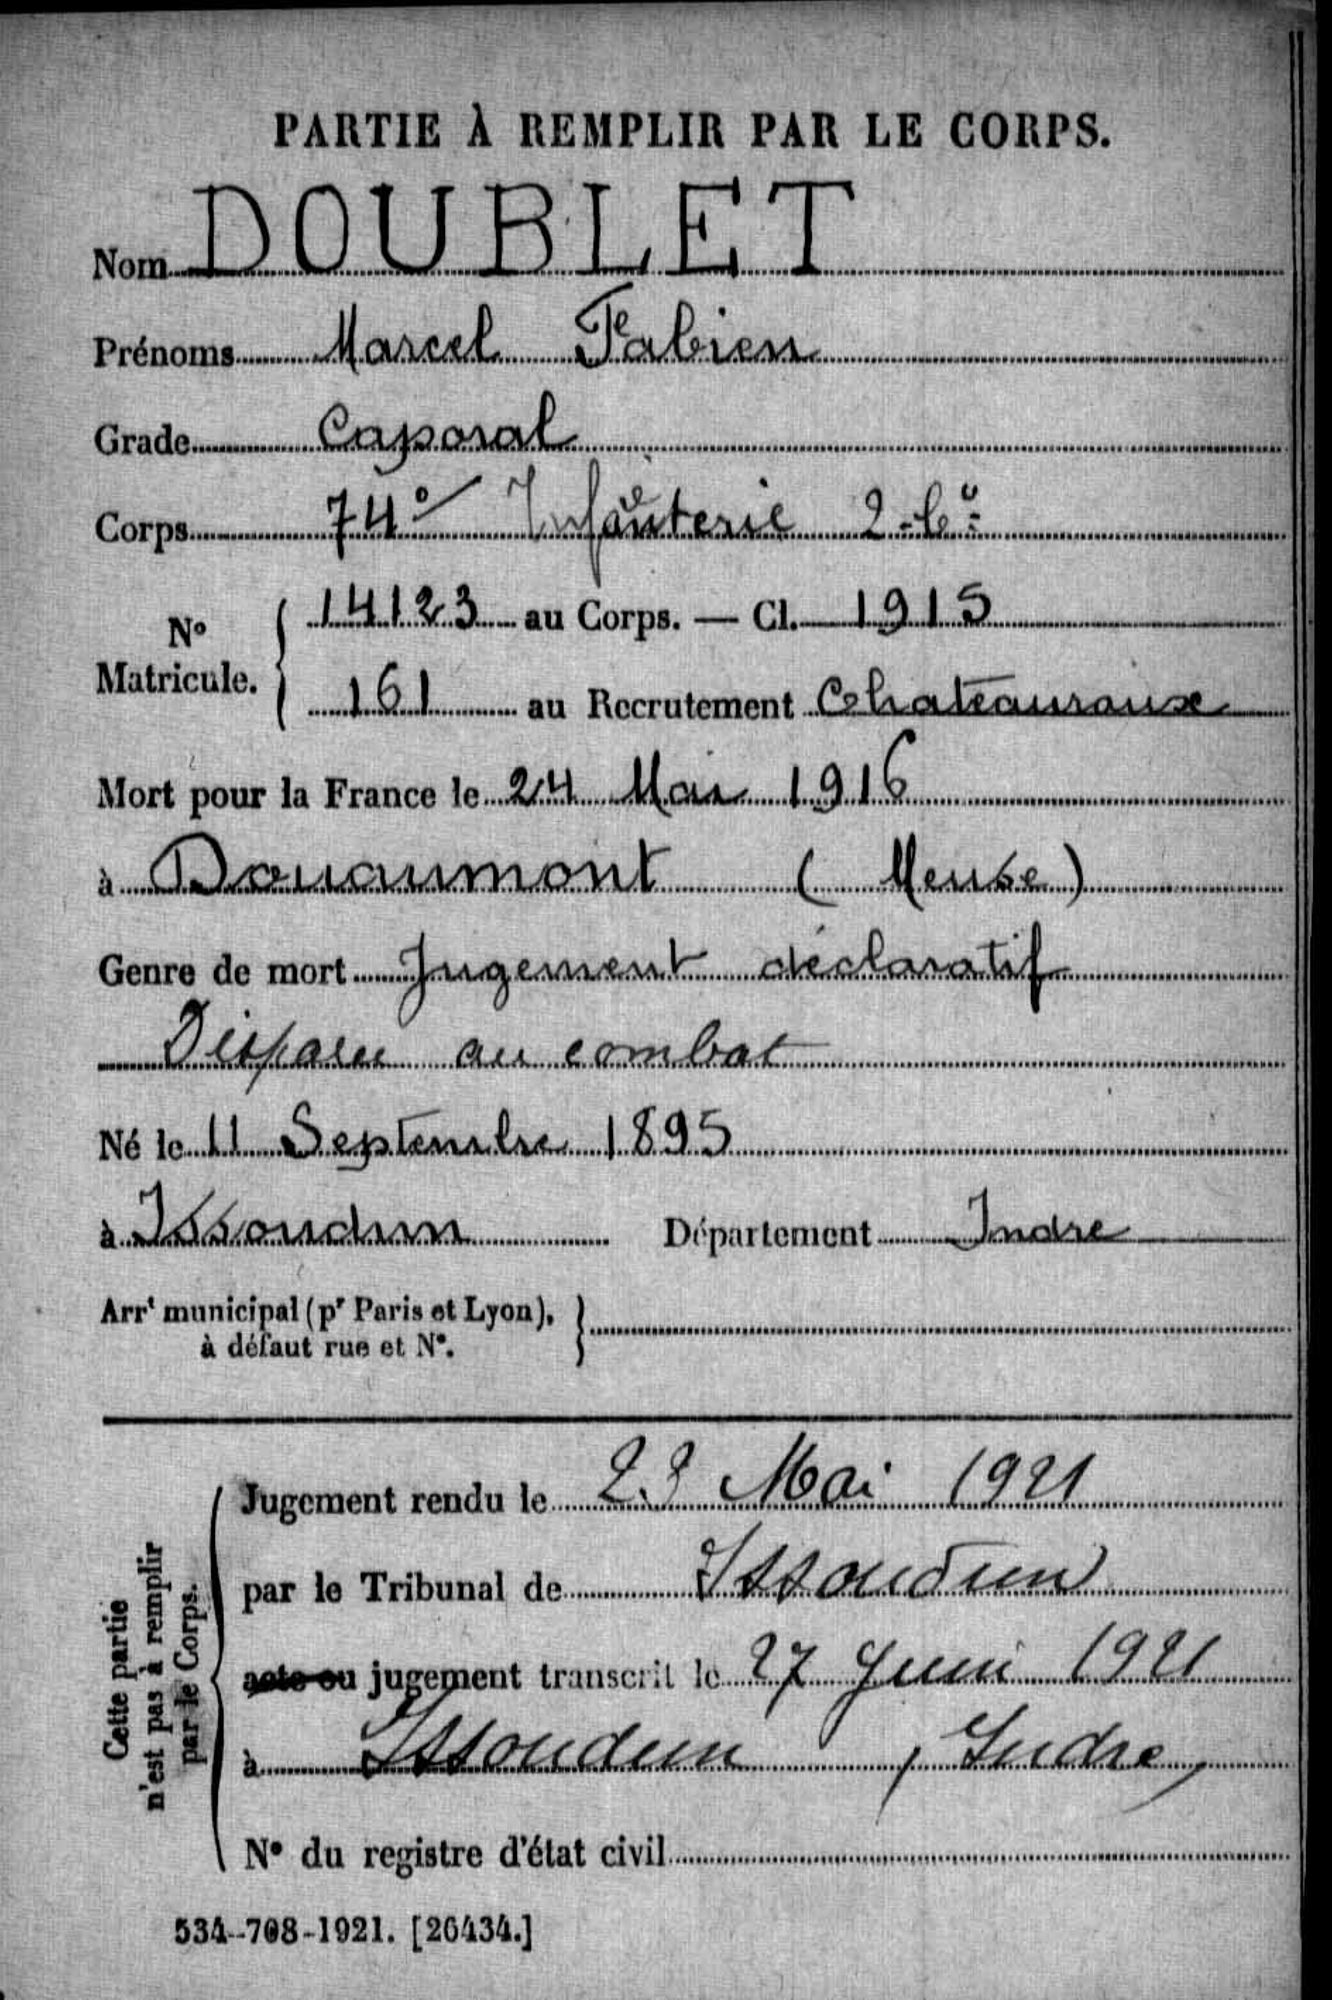 PARTIE À REMPLIR PAR LE CORPS.
Nom DOUBLET
Prénoms Marcel Fabien
Grade Caporal
Corps 74e Infanterie
N° Matricule. 14123 au Corps. — Cl. 1915
161 au Recrutement Chateauroux
Mort pour la France le 24 Mai 1916
à Douaumont (Meuse)
Genre de mort Jugement déclaratif
Disparu au combat
Né le 11 Septembre 1895
à Issoudun Département Indre
Arrt municipal (pr Paris et Lyon),
à défaut rue et N°.
Cette partie
n'est pas à remplir
par le Corps.
Jugement rendu le 23 Mai 1921
par le Tribunal de Issoudun
acte ou jugement transcrit le 27 Juin 1921
à Issoudun, Indre
N° du registre d'état civil
534-708-1921. [26434.]